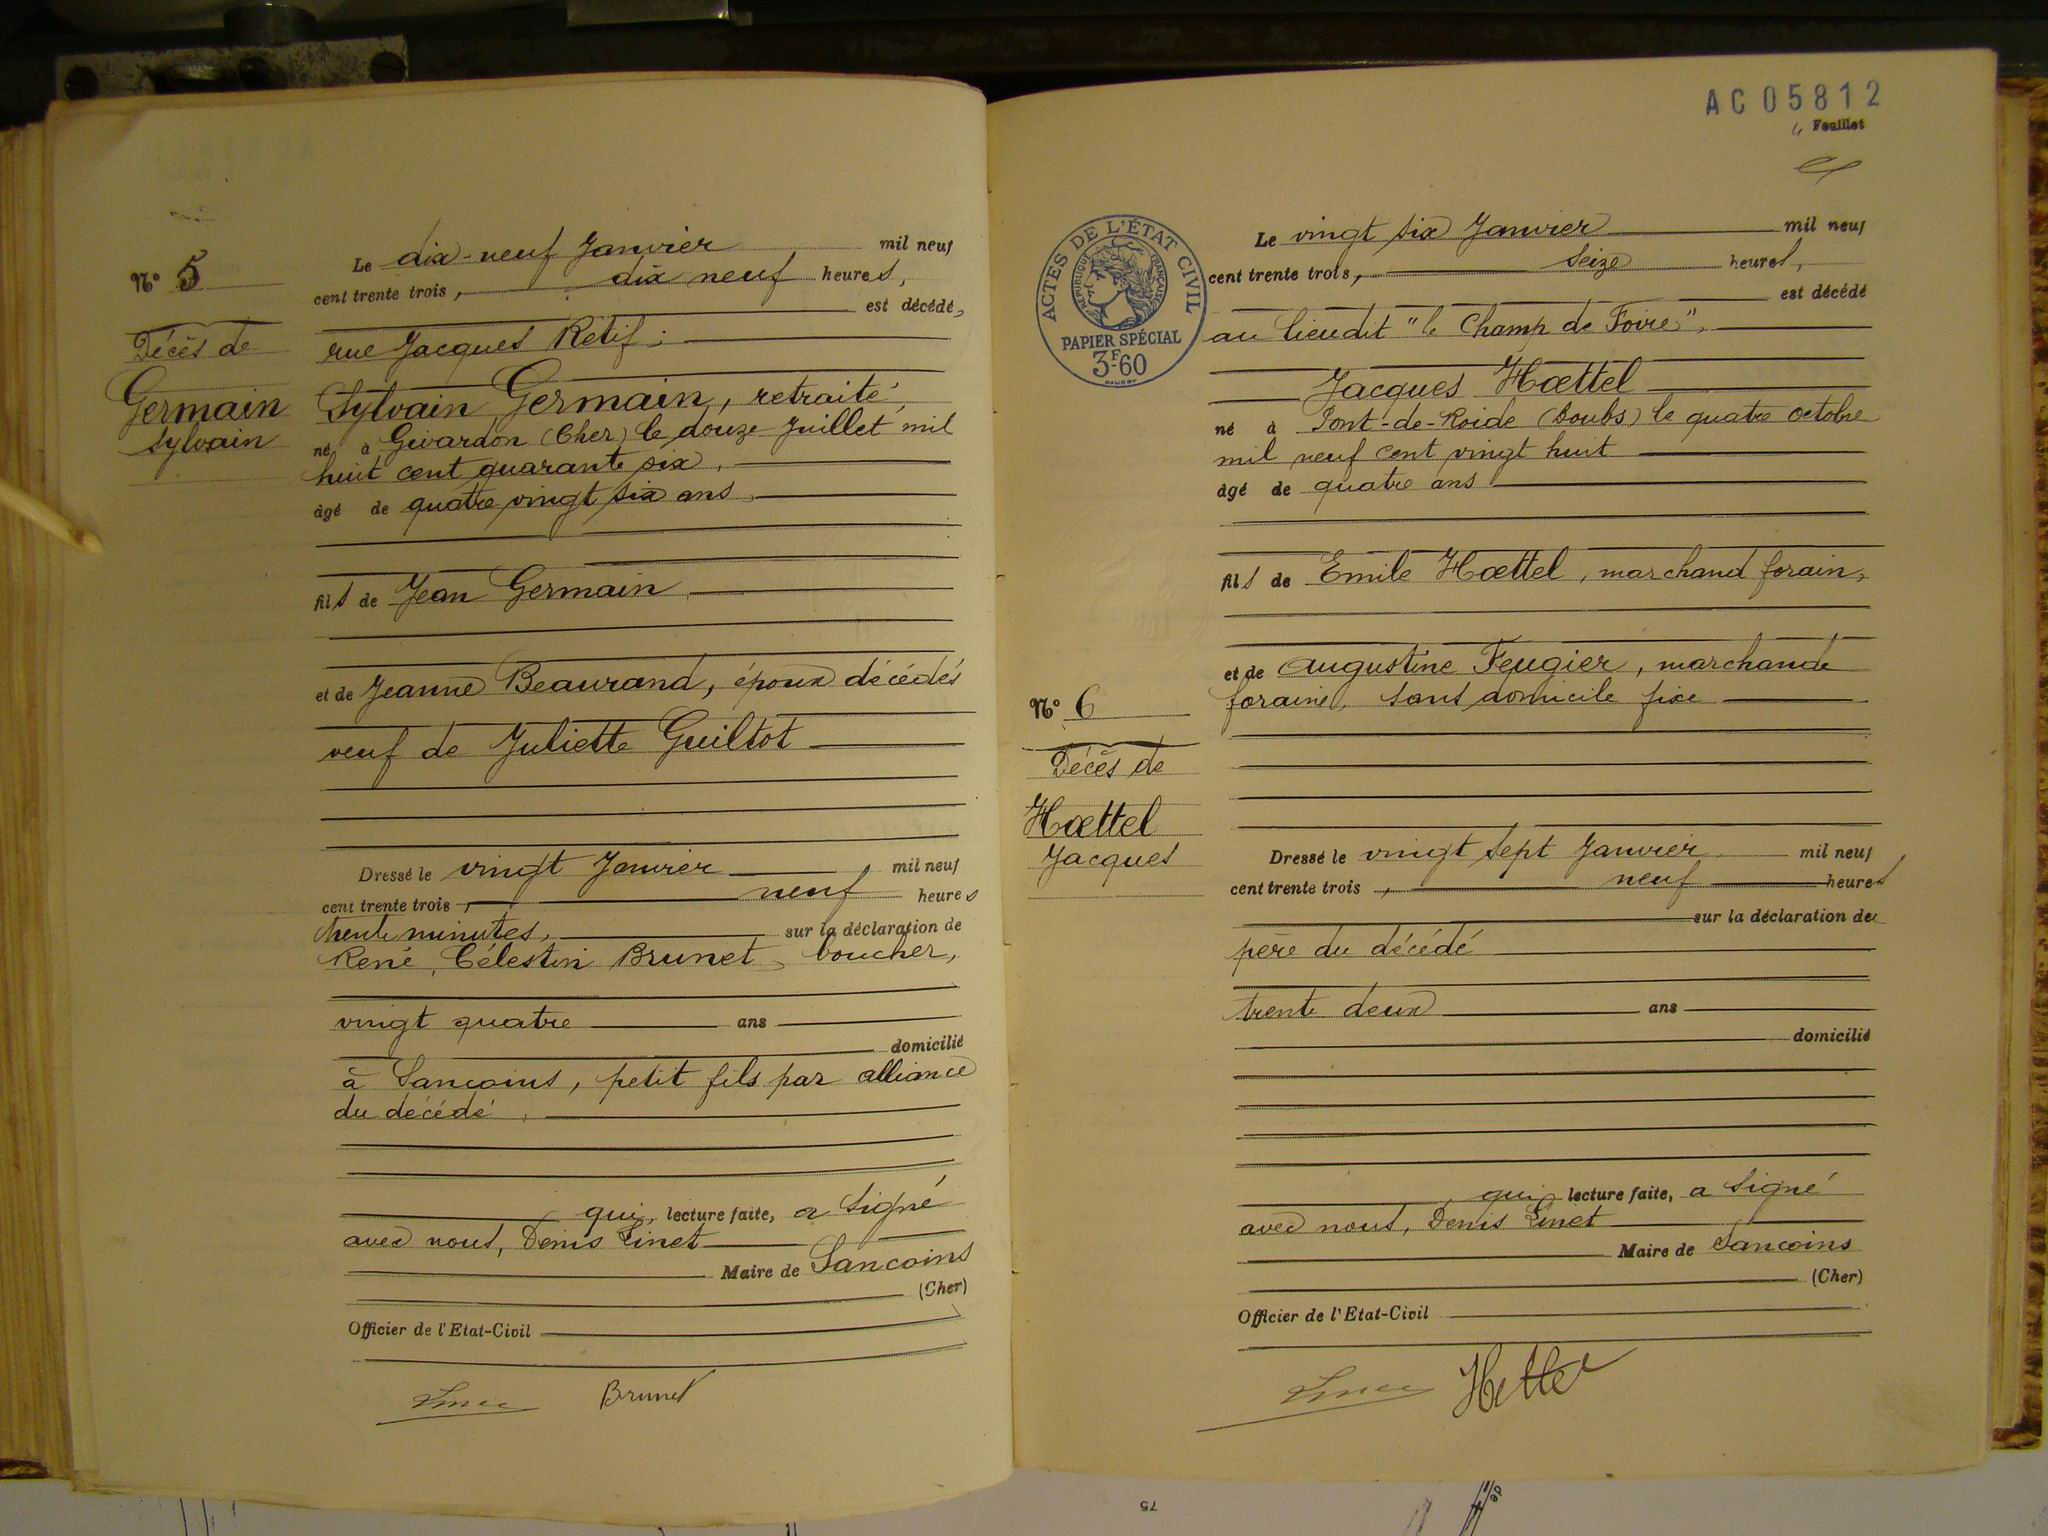 Nº 5
Décès de
Germain
Sylvain
Le dix-neuf Janvier mil neuf
cent trente trois, dix neuf heures,
est décédé,
rue Jacques Retif :
Sylvain Germain, retraité,
né à Givardon (Cher) le douze Juillet mil
huit cent quarante six,
âgé de quatre vingt six ans,
fils de Jean Germain,
et de Jeanne Beaurand, époux décédés
veuf de Juliette Guiltot
Dressé le vingt Janvier mil neuf
cent trente trois, neuf heures
trente minutes, sur la déclaration de
René, Célestin Brunet, boucher,
vingt quatre ans
domicilié
à Sancoins, petit fils par alliance
du décédé,
qui, lecture faite, a signé
avec nous, Denis Linet
Maire de Sancoins
(Cher)
Officier de l'Etat-Civil
Brunet
AC05812
Feuillet
ACTES DE L'ÉTAT CIVIL
RÉPUBLIQUE FRANÇAISE
PAPIER SPÉCIAL
3F60
Le vingt six Janvier mil neuf
cent trente trois, seize heures,
est décédé
au lieudit "le Champ de Foire",
Jacques Hœttel
né à Pont-de-Roide (Doubs) le quatre octobre
mil neuf cent vingt huit
âgé de quatre ans
fils de Emile Hœttel, marchand forain,
et de Augustine Feugier, marchande
foraine, sans domicile fixe
Nº 6
Décès de
Hœttel
Jacques
Dressé le vingt sept Janvier mil neuf
cent trente trois, neuf heures
sur la déclaration de
père du décédé
trente deux ans
domicilié
qui, lecture faite, a signé
avec nous, Denis Linet
Maire de Sancoins
(Cher)
Officier de l'Etat-Civil
75